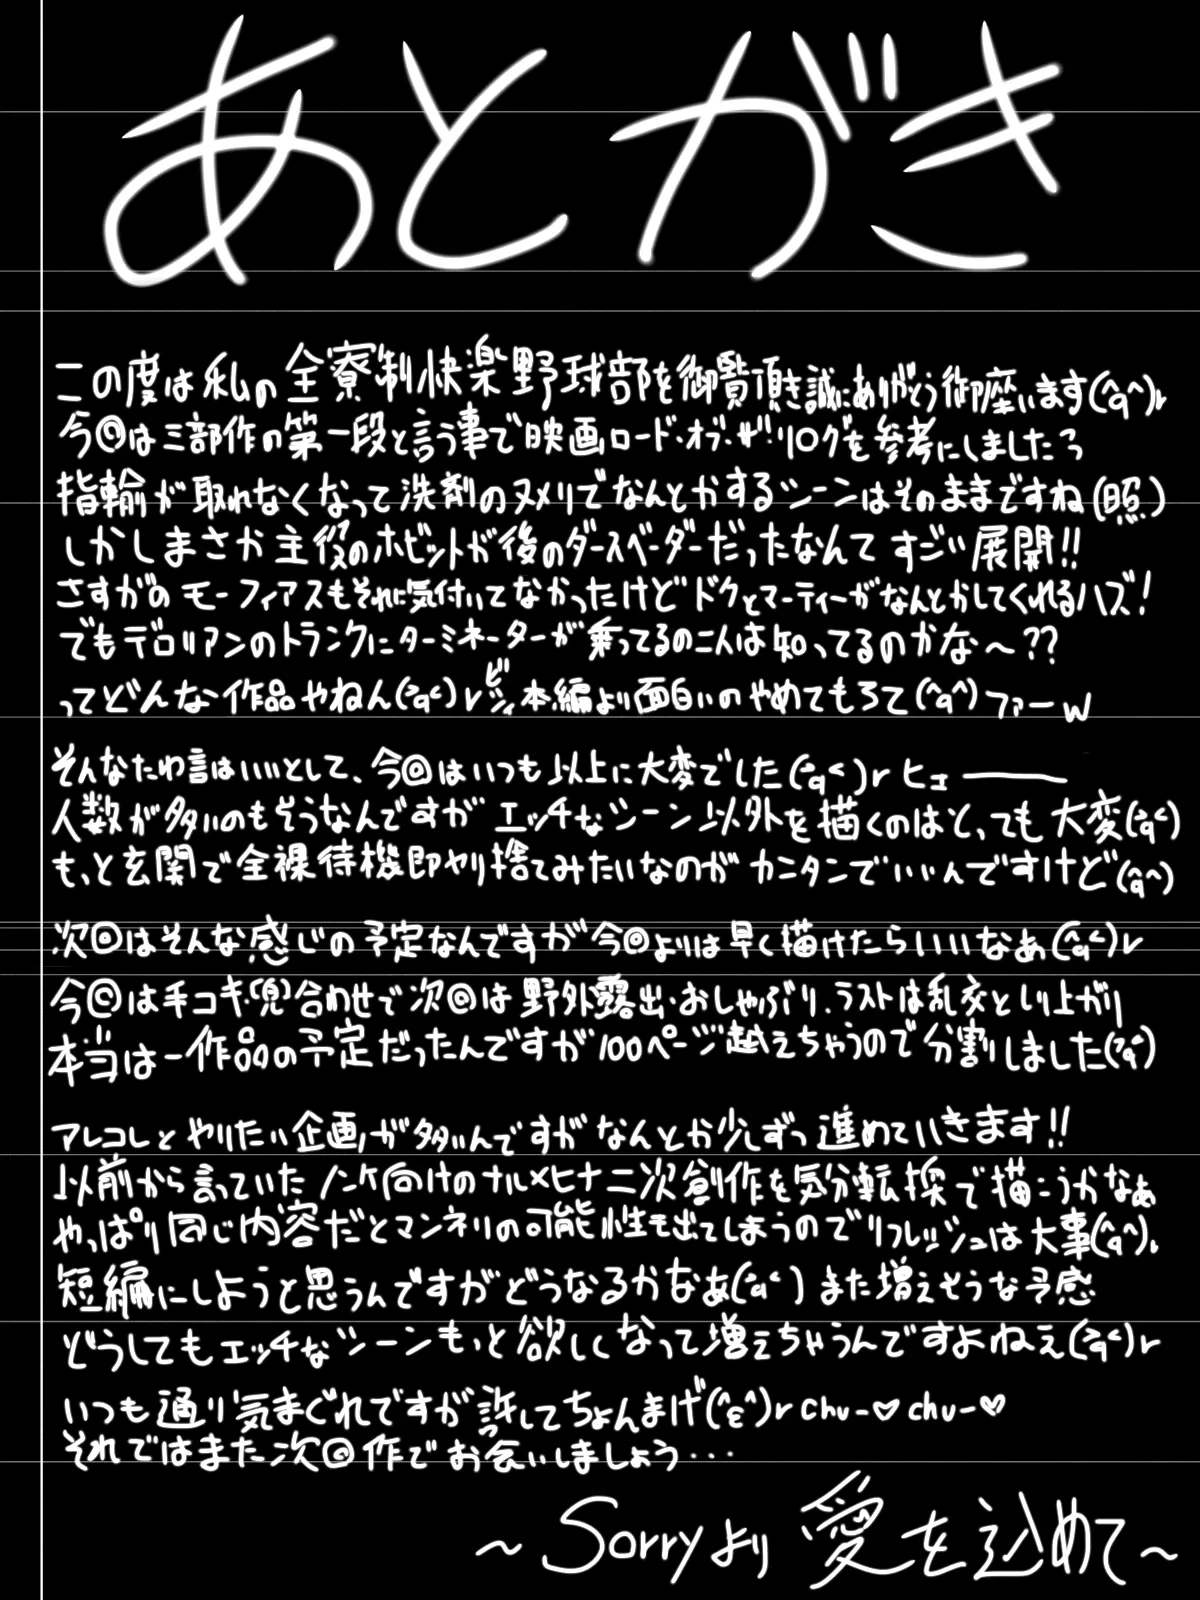 あとがき
この度は私の全寮制快楽野球部を御覧頂き誠にありがとう御座います(^q^)r
今回は三部作の第一段と言う事で映画ロード・オブ・ザ・リングを参考にしましたっ
指輪が取れなくなって洗剤のヌメリでなんとかするシーンはそのままですね(照)
しかしまさか主役のホビットが後のダースベーダーだったなんて すごい展開!!
さすがのモーフィアスもそれに気付いてなかったけどドクとマーティーがなんとかしてくれるハズ!
でもデロリアンのトランクにターミネーターが乗ってるの二人は知ってるのかな～??
ってどんな作品やねん(>q<)r ビシィ 本編より面白いのやめてもろて(^q^)ファーw
そんなたわ言はいいとして、今回はいつも以上に大変でした(>q<)r ヒェ───
人数が多いのもそうなんですが エッチなシーン以外を描くのはとっても大変(>q<)
もっと玄関で全裸待機即ヤリ捨てみたいなのが カンタンでいいんですけど(^q^)
次回はそんな感じの予定なんですが今回よりは早く描けたらいいなあ(^q<)r
今回は手コキ・(兜)合わせで次回は野外露出・おしゃぶり、ラストは乱交としり上がり
本当は一作品の予定だったんですが100ページ越えちゃうので分割しました(>q<)
アレコレとやりたい企画が多いんですがなんとか少しずつ進めていきます!!
以前から言っていたノンケ向けのナル×ヒナ二次創作を気分転換で描こうかなぁ
やっぱり同じ内容だとマンネリの可能性も出てしまうのでリフレッシュは大事(^q^)r
短編にしようと思うんですがどうなるかなあ(>q<) また増えそうな予感
どうしてもエッチなシーンもっと欲しくなって増えちゃうんですよねぇ(>q<)r
いつも通り気まぐれですが許してちょんまげ(^ε^)r chu-♡ chu-♡
それではまた次回作でお会いしましょう・・・
～Sorryより 愛を込めて～